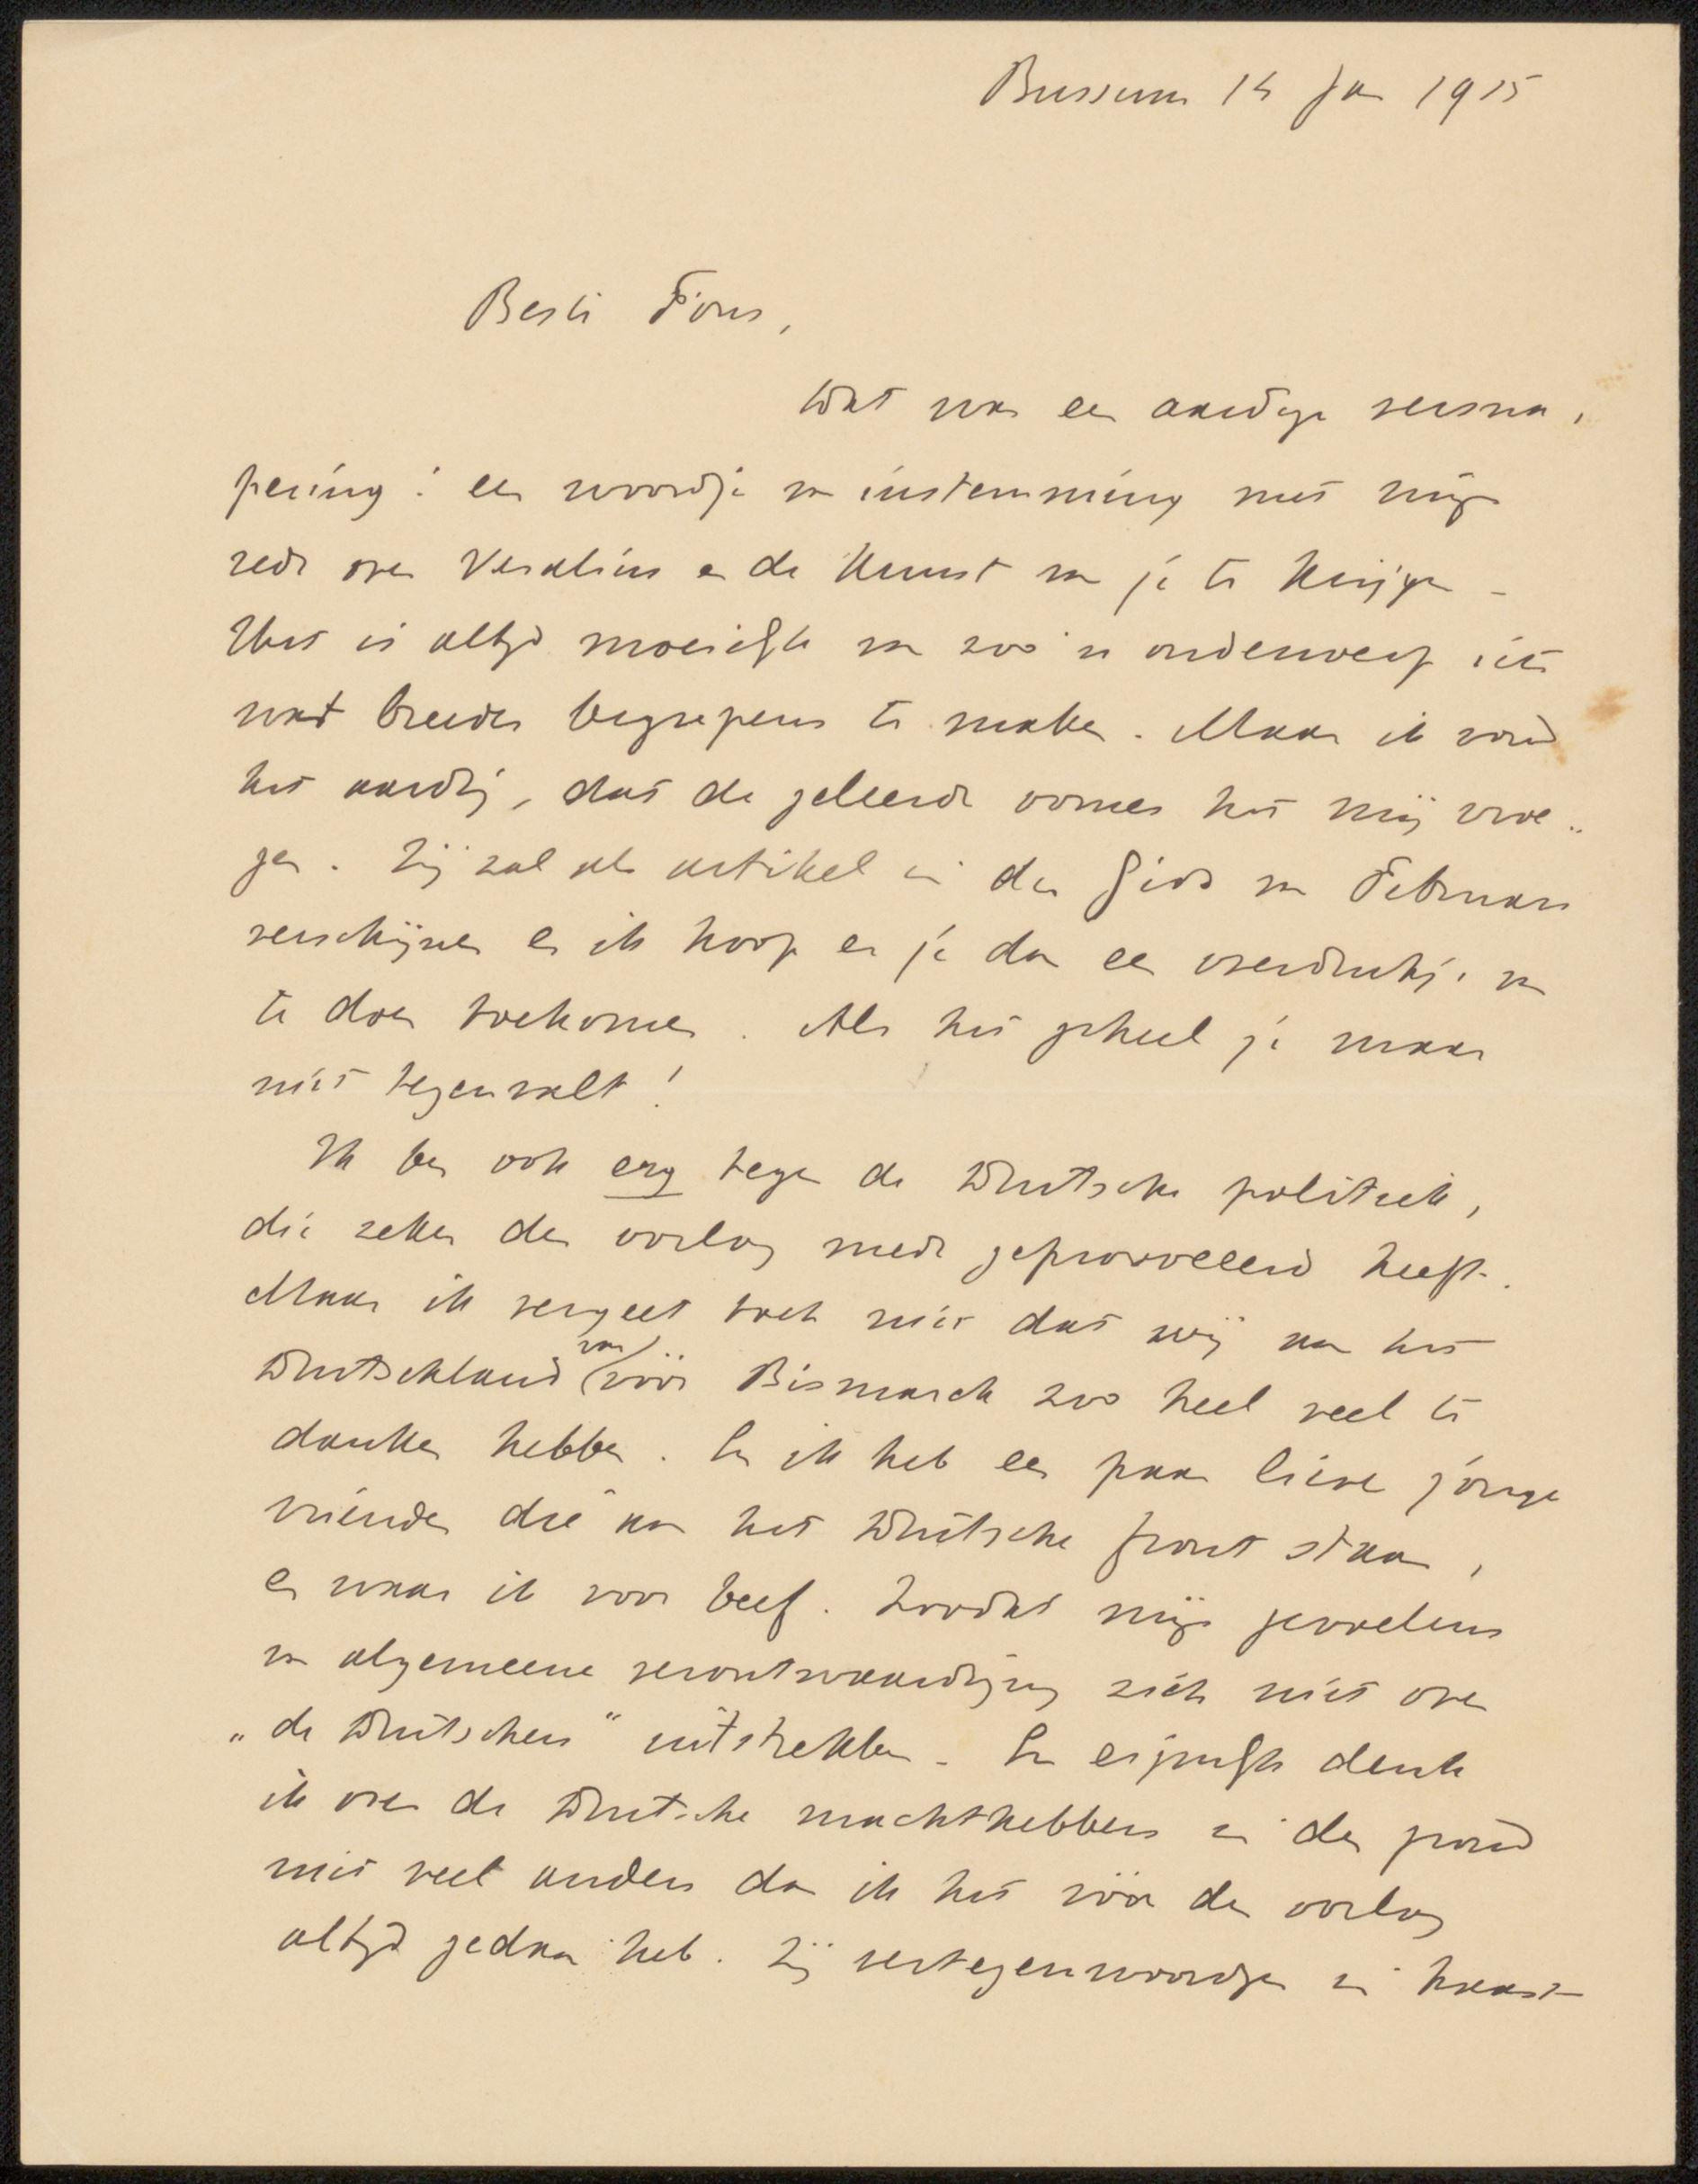 Bussum 14 Jan 1915
Beste Fons,
Wat was een aardige verra,
ssing: een woordje van instemming met mijn
rede over Vesalius en de Kunst van je te krijgen –
Het is altijd moeielijk van zoo'n onderwerp iets
wat breeder begrepens te maken. Maar ik vond
het aardig, dat de geleerde oomes het mij vroe„
gen. Zij zal als artikel in den Gids van Februari
verschijnen en ik hoop er je dan een overdrukje van
te doen toekomen. Als het geheel je maar
niet tegenvalt!
Ik ben ook erg tegen de Duitsche politiek,
die zeker den oorlog mede geprovoceerd heeft.
Maar ik vergeet toch niet dat wij aan het
Duitschland van vóór Bismarck zoo heel veel te
danken hebben. En ik heb een paar lieve jonge
vrienden die aan het Duitsche front staan,
en waar ik voor beef. Zoodat mijn gevoelens
van algemeene verontwaardiging zich niet over
„de Duitschers" uitstrekken – En eigenlijk denk
ik over de Duitsche machthebbers in den grond
niet veel anders dan ik het vóór den oorlog
altijd gedaan heb. Zij vertegenwoordigen in haast